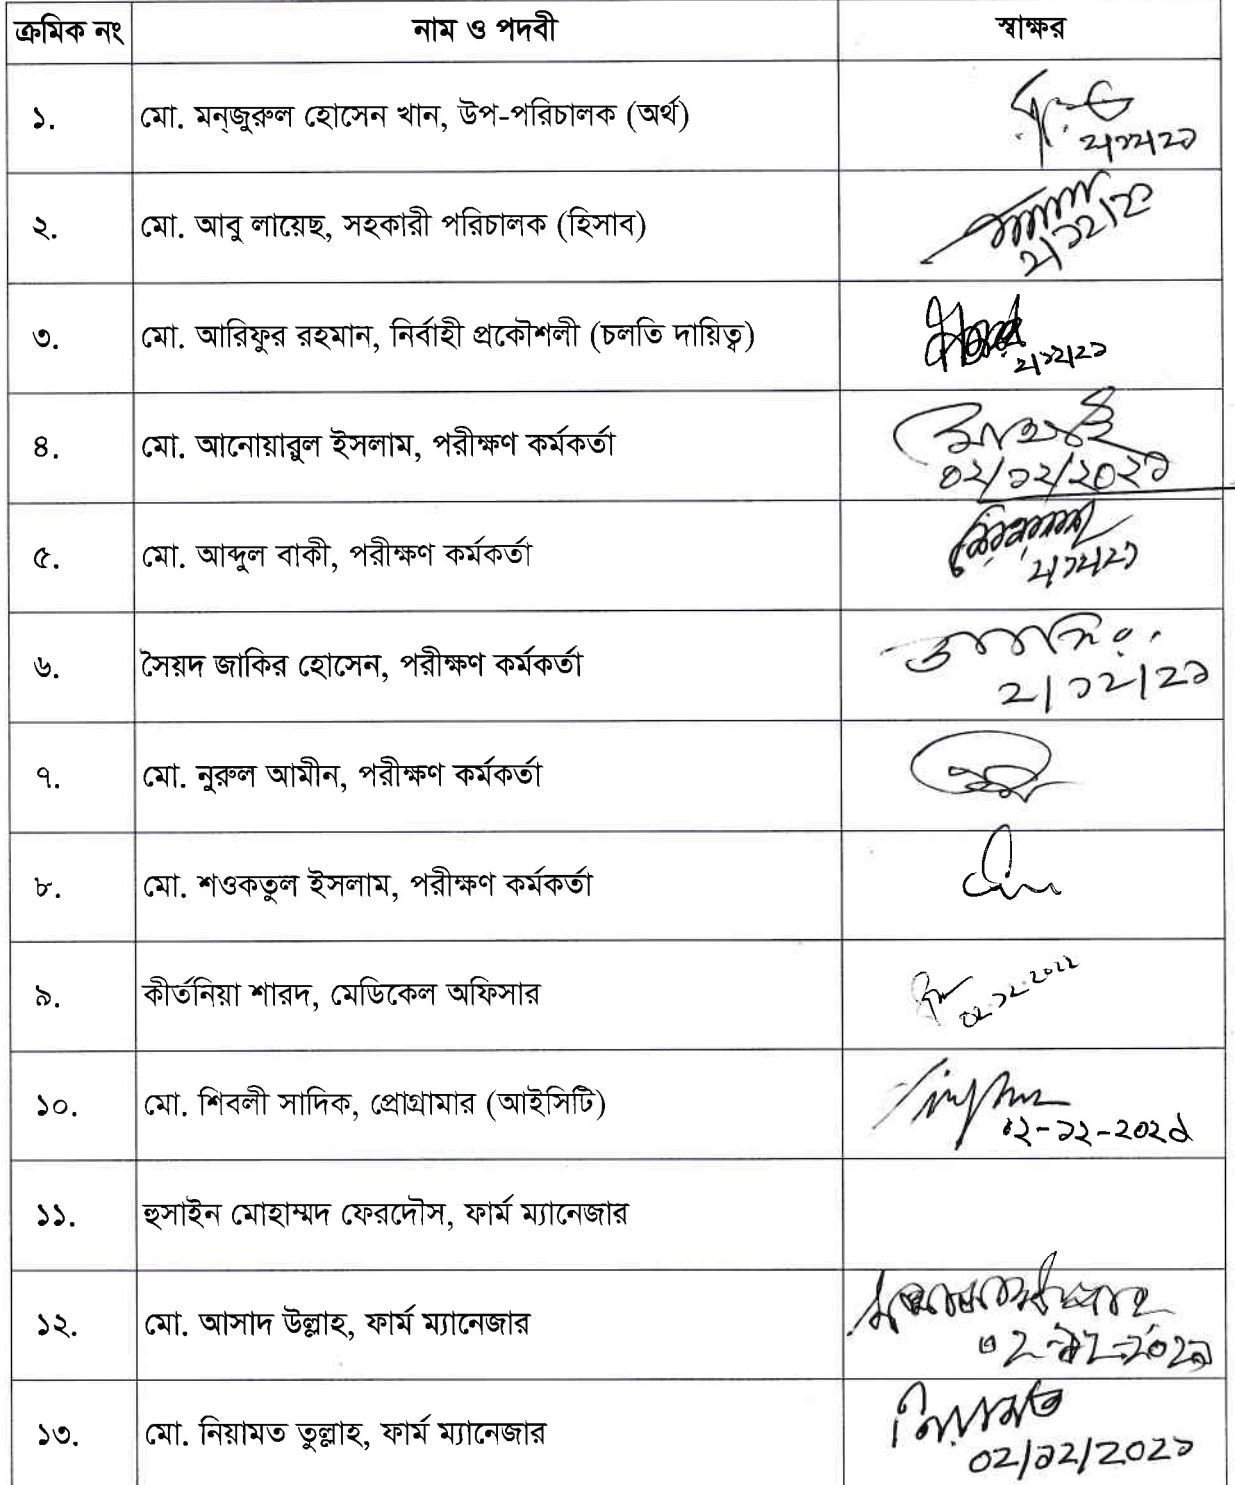 ক্রমিক নং নাম ও পদবী স্বাক্ষর
১. মো. মন্‌জুরুল হোসেন খান, উপ-পরিচালক (অর্থ)
২/১২/২১
২. মো. আবু লায়েছ, সহকারী পরিচালক (হিসাব)
৩. মো. আরিফুর রহমান, নির্বাহী প্রকৌশলী (চলতি দায়িত্ব)
২/১২/২১
৪. মো. আনোয়ারুল ইসলাম, পরীক্ষণ কর্মকর্তা
০২/১২/২০২১
৫. মো. আব্দুল বাকী, পরীক্ষণ কর্মকর্তা
২/১২/২১
৬. সৈয়দ জাকির হোসেন, পরীক্ষণ কর্মকর্তা
২/১২/২১
৭. মো. নুরুল আমীন, পরীক্ষণ কর্মকর্তা
৮. মো. শওকতুল ইসলাম, পরীক্ষণ কর্মকর্তা
৯. কীর্তনিয়া শারদ, মেডিকেল অফিসার
১০. মো. শিবলী সাদিক, প্রোগ্রামার (আইসিটি)
০২-১২-২০২১
১১. হুসাইন মোহাম্মদ ফেরদৌস, ফার্ম ম্যানেজার
১২. মো. আসাদ উল্লাহ, ফার্ম ম্যানেজার
০২-১২-২০২১
১৩. মো. নিয়ামত তুল্লাহ, ফার্ম ম্যানেজার
নিয়ামত
০২/১২/২০২১